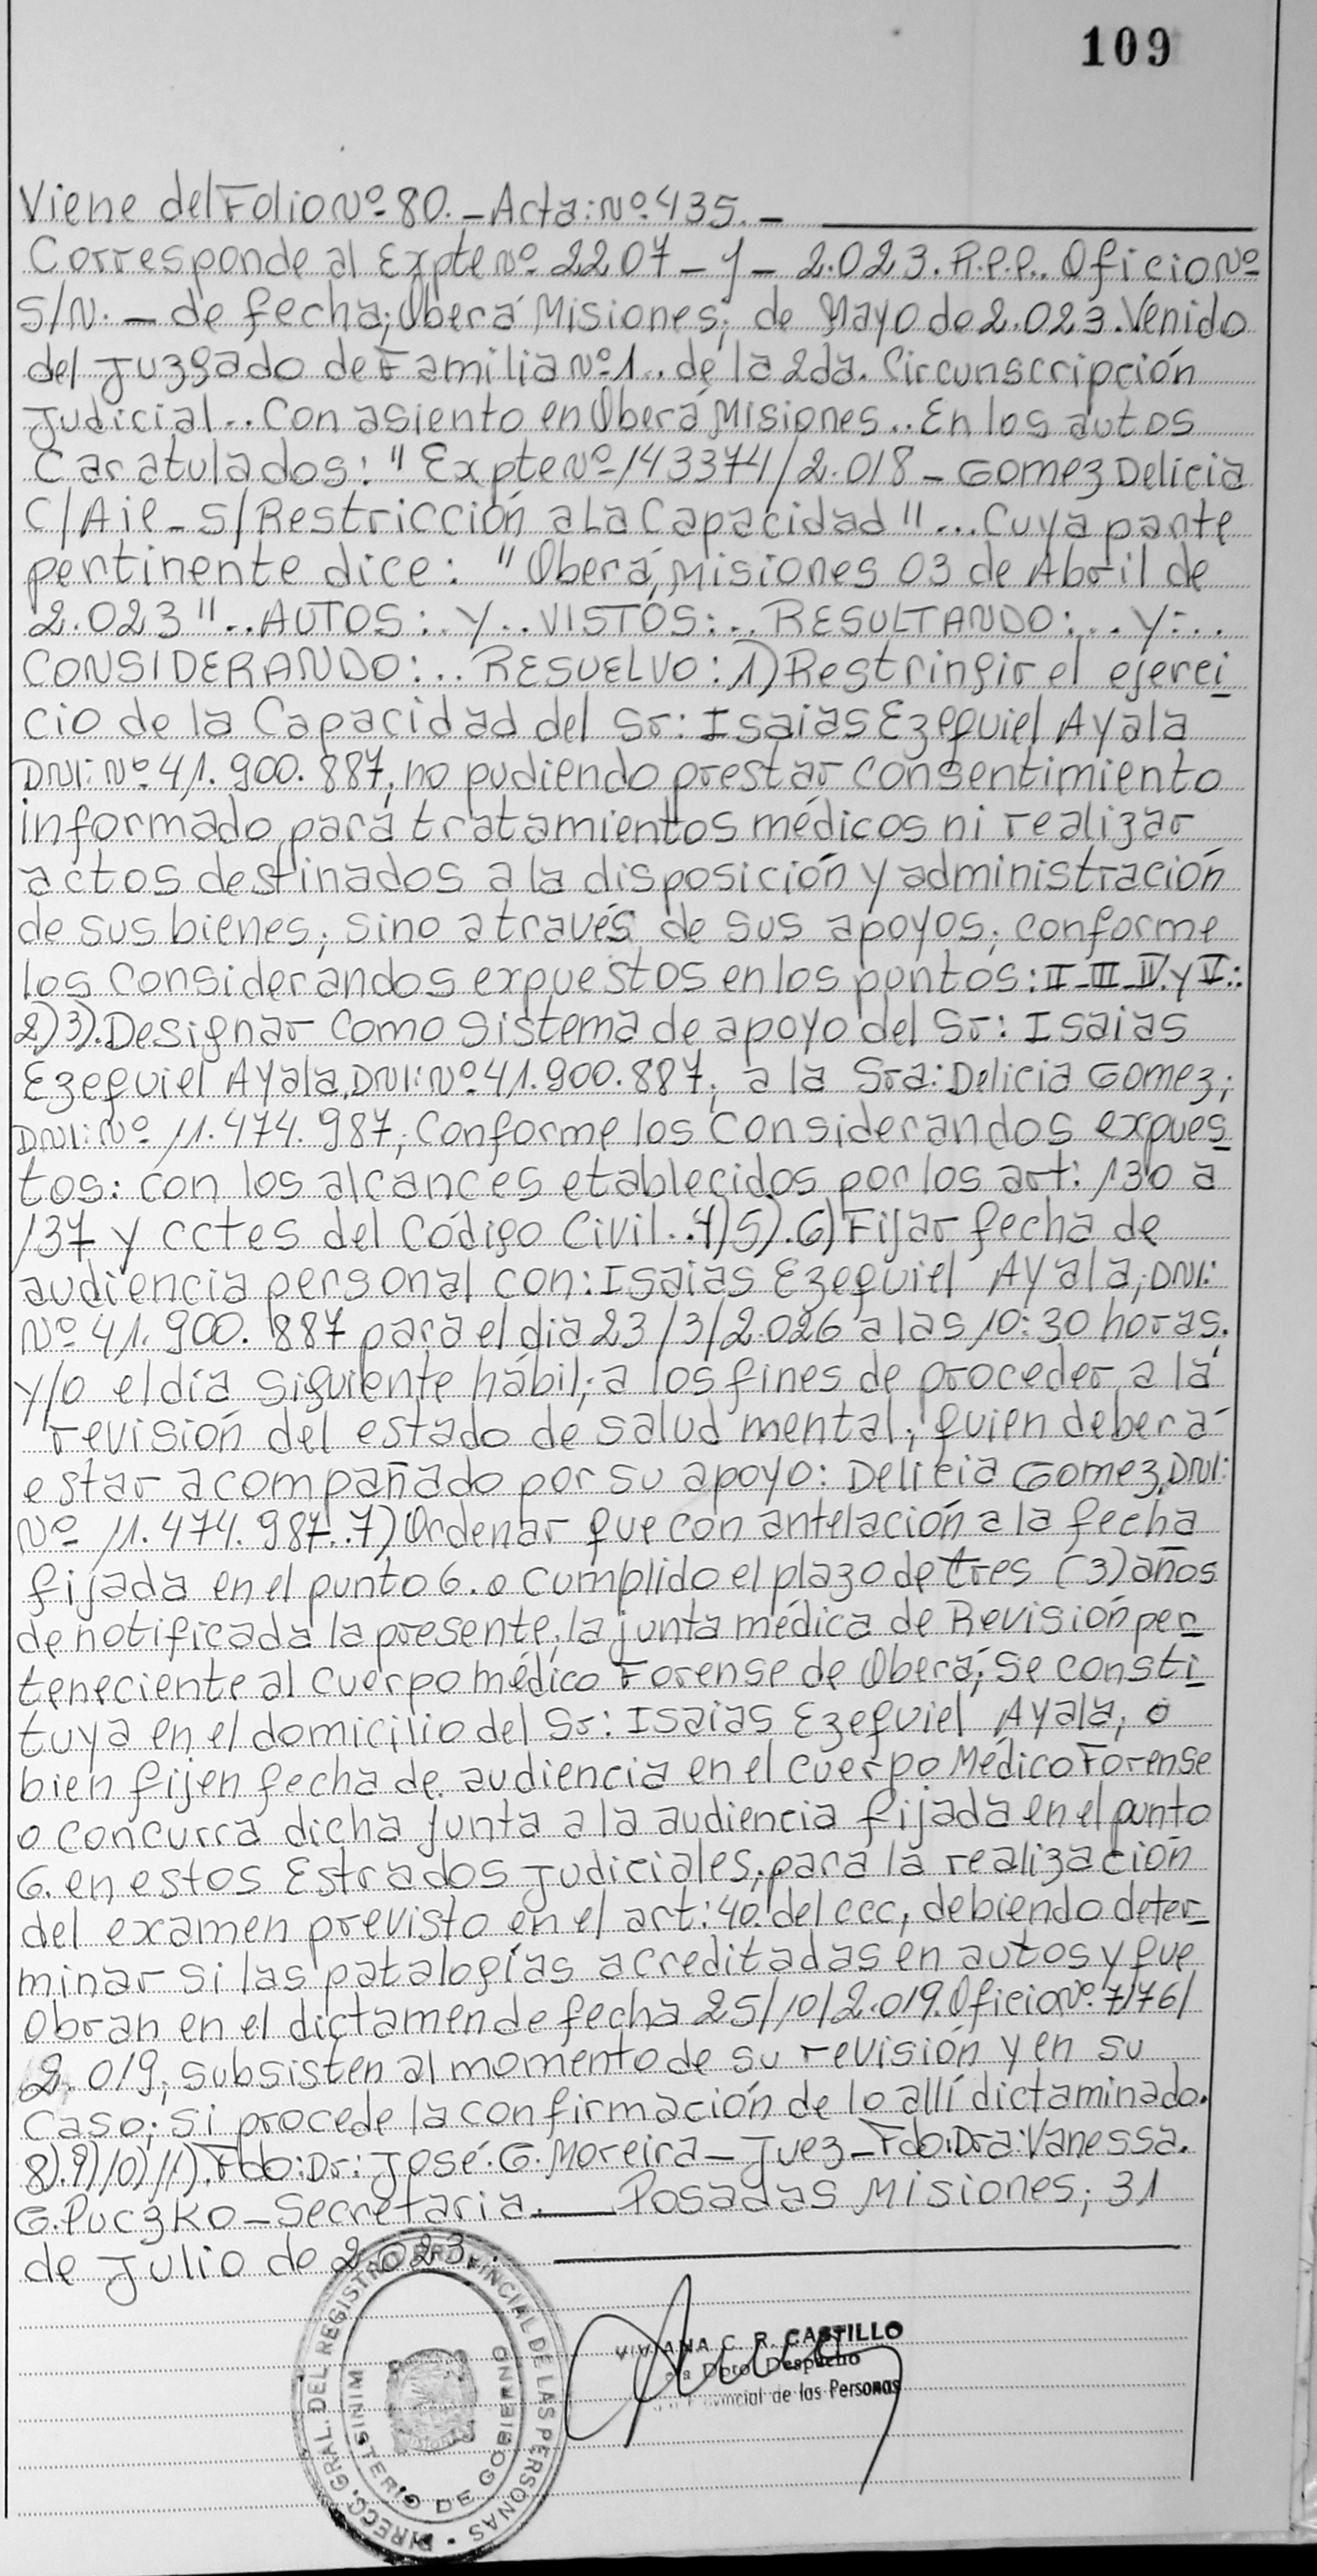 109
Viene del Folio Nº 80. - Acta: Nº 435. -
Corresponde al Expte Nº 2207 - Y - 2.023. R.P.P.. Oficio Nº
S/N. - de fecha; Oberá Misiones; de Mayo de 2.023. Venido
del Juzgado de Familia Nº 1.. de la 2da. Circunscripción
Judicial.. Con asiento en Oberá Misiones.. En los autos
Caratulados: " Expte Nº 143374/2.018 - Gomez Delicia
C/ - S/ Restricción a La Capacidad "... Cuya parte
pertinente dice: "Oberá, Misiones 03 de Abril de
2.023".. AUTOS: Y.. VISTOS:.. RESULTANDO:... Y:..
CONSIDERANDO:... RESUELVO: 1) Restringir el ejerci
cio de la Capacidad del Sr: Isaias Ezequiel Ayala
DNI: Nº 41.900.887, no pudiendo prestar consentimiento
informado para tratamientos médicos ni realizar
actos destinados a la disposición y administración
de sus bienes; sino a través de sus apoyos; conforme
los Considerandos expuestos en los puntos: II-III-IV y V:.
2) 3). Designar como sistema de apoyo del Sr: Isaias
Ezequiel Ayala, DNI: Nº 41.900.887; a la Sra: Delicia Gomez;
DNI: Nº 11.474.987; Conforme los Considerandos expues
tos: con los alcances etablecidos por los art: 130 a
137 y cctes del Código Civil.. 4) 5). 6) Fijar fecha de
audiencia personal con: Isaias Ezequiel Ayala; DNI:
Nº 41.900.887 para el dia 23/3/2.026 a las 10:30 horas.
y/o el día siguiente hábil; a los fines de proceder a la
revisión del estado de salud mental; quien deberá
estar acompañado por su apoyo: Delicia Gomez, DNI:
Nº 11.474.987.. 7) Ordenar que con antelación a la fecha
fijada en el punto 6. o cumplido el plazo de tres (3) años
de notificada la presente; la junta médica de Revisión per
teneciente al Cuerpo médico Forense de Oberá; se consti
tuya en el domicilio del Sr: Isaias Ezequiel Ayala; o
bien fijen fecha de audiencia en el Cuerpo Médico Forense
o concurra dicha Junta a la audiencia fijada en el punto
6. en estos Estrados Judiciales; para la realización
del examen previsto en el art: 40. del CCC, debiendo deter
minar si las patalogías acreditadas en autos y que
Obran en el dictamen de fecha 25/10/2.019. Oficio Nº 7176/
2.019; subsisten al momento de su revisión y en su
Caso; si procede la confirmación de lo allí dictaminado.
8). 9) 10) 11). Fdo: Dr: José. G. Moreira - Juez - Fdo: Dra: Vanessa.
G. Puczko - Secretaria. Posadas Misiones; 31
de Julio de 2.023..
DIRECC. GRAL. DEL REGISTRO PROVINCIAL DE LAS PERSONAS
MINISTERIO DE GOBIERNO
VIVIANA C. R. CASTILLO
Dpto Despacho
de las Personas